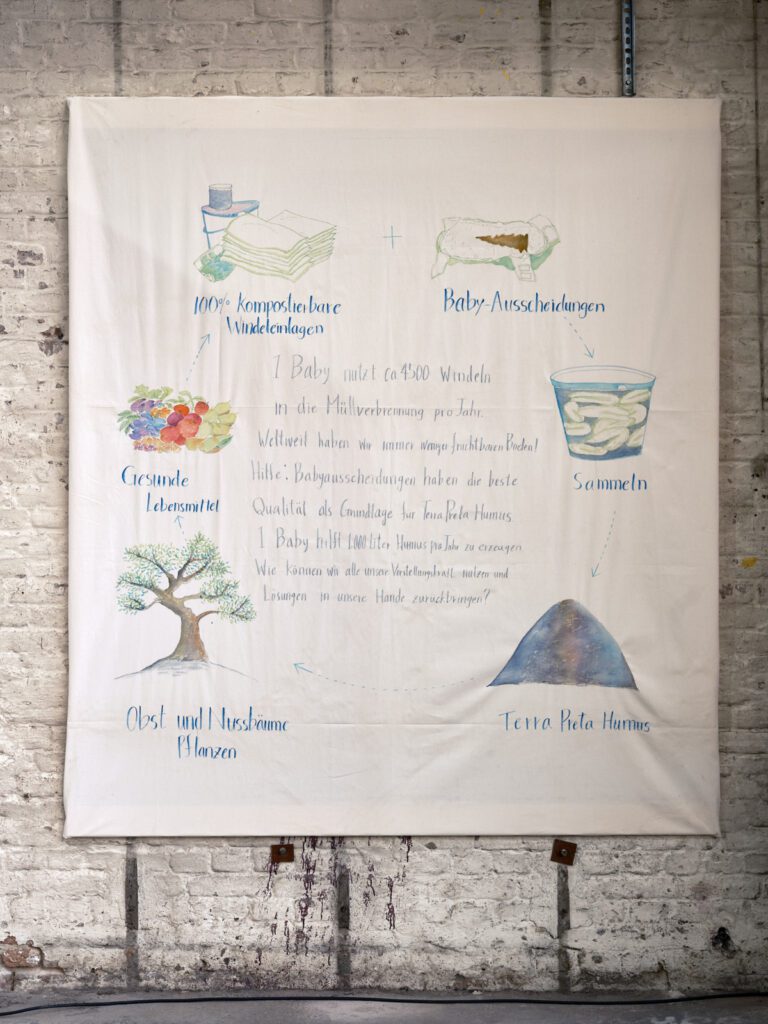 100% Kompostierbare
Windeleinlagen
+
Baby-Ausscheidungen
1 Baby nutzt ca 4'500 Windeln
in die Müllverbrennung pro Jahr.
Weltweit haben wir immer weniger fruchtbaren Boden!
Hilfe: Babyausscheidungen haben die beste
Qualität als Grundlage für Terra Preta Humus
1 Baby hilft 1.000 Liter Humus pro Jahr zu erzeugen
Wie können wir alle unsere Vorstellungskraft nutzen und
Lösungen in unsere Hände zurückbringen?
Sammeln
Terra Preta Humus
Obst und Nussbäume
Pflanzen
Gesunde
Lebensmittel